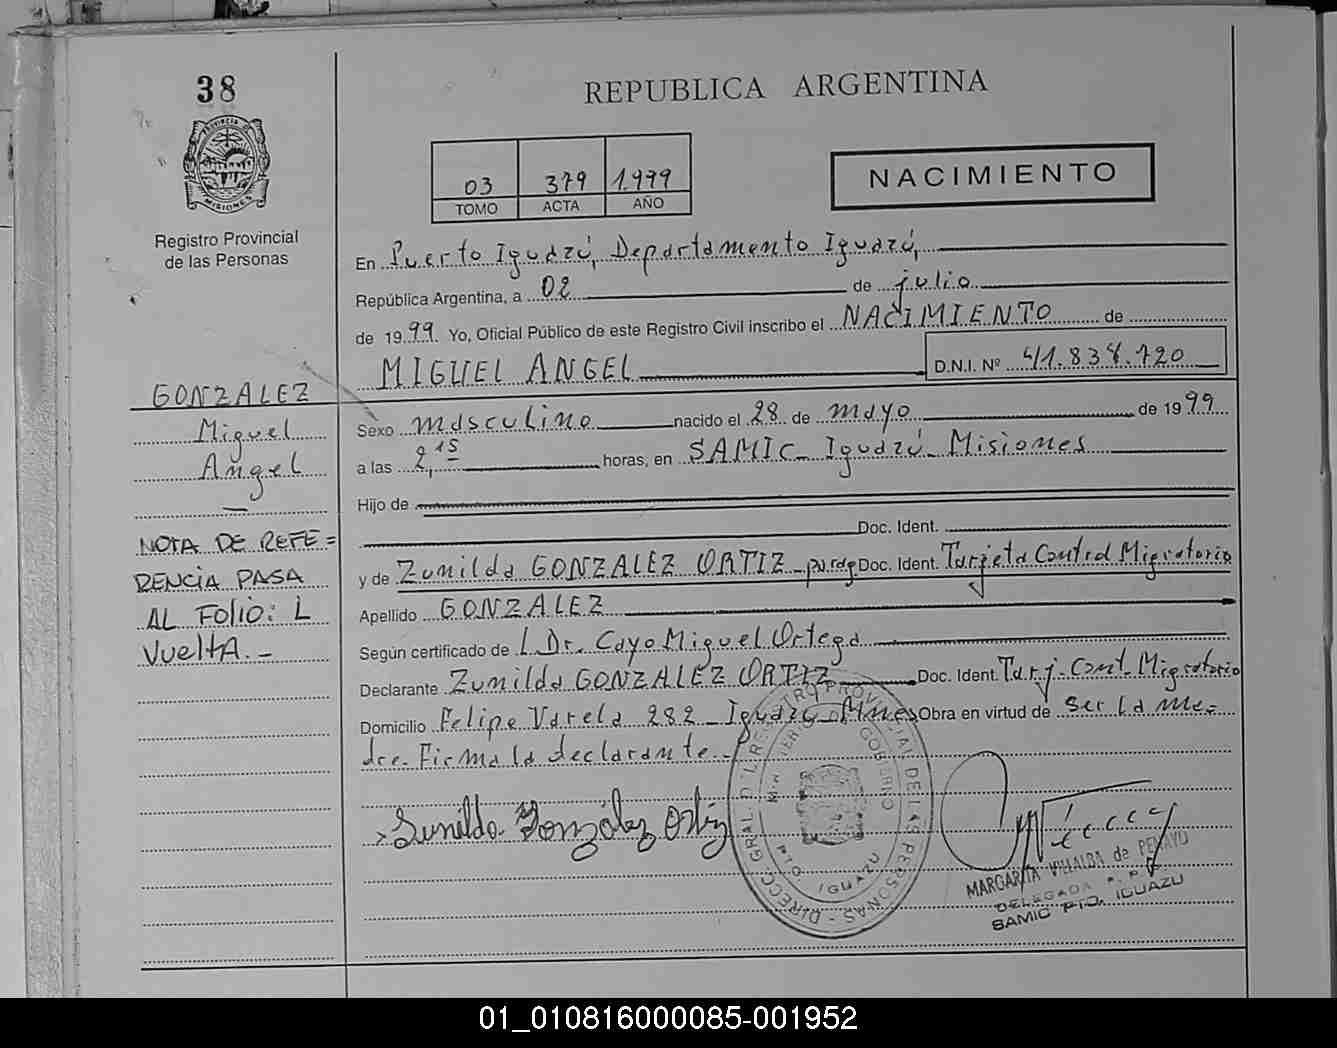 38
PROVINCIA DE
MISIONES
Registro Provincial
de las Personas
GONZALEZ
Miguel
Angel
NOTA DE REFE=
RENCIA PASA
AL FOLIO: L
VUELTA.-
REPUBLICA ARGENTINA
03 379 1.999
TOMO ACTA AÑO
NACIMIENTO
En Puerto Iguazú, Departamento Iguazú,
República Argentina, a 02 de julio
de 1999. Yo, Oficial Público de este Registro Civil inscribo el NACIMIENTO de
MIGUEL ANGEL D.N.I. Nº 41.838.720
Sexo masculino nacido el 28 de mayo de 1999
a las 2,15 horas, en SAMIC- Iguazú- Misiones
Hijo de
Doc. Ident.
y de Zunilda GONZALEZ ORTIZ - Doc. Ident. Tarjeta Control Migratorio
Apellido GONZALEZ
Según certificado de Dr. Cayo Miguel Ortega
Declarante Zunilda GONZALEZ ORTIZ Doc. Ident. Tarj. Cont. Migratorio
Domicilio Felipe Varela 282 - Iguazú - Mnes Obra en virtud de ser la ma-
dre. Firma la declarante.-
Sunilda González Ortiz
DIRECC. GRAL. DEL REGISTRO PROVINCIAL DE LAS PERSONAS
GOBIERNO
PTO. IGUAZU
MARGARITA VILLALBA de PENAYO
DELEGADA R. P. P.
SAMIC PTO. IGUAZU
01_010816000085-001952